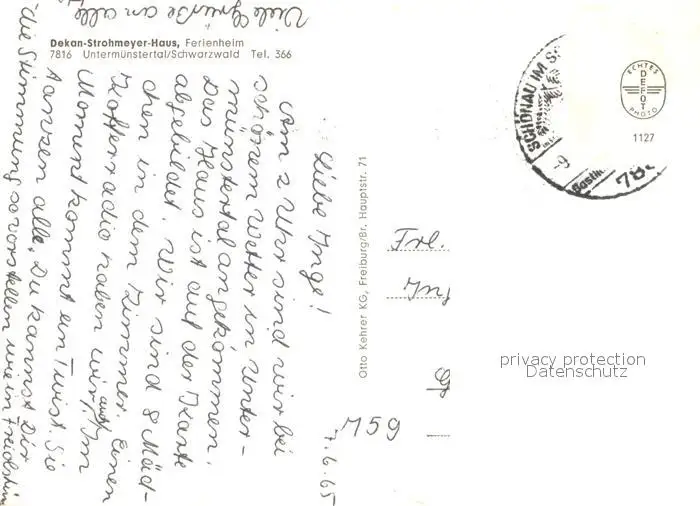 Dekan-Strohmeyer-Haus, Ferienheim
7816 Untermünstertal/Schwarzwald Tel. 366
7.6.65
Liebe Inge!
Um 2 Uhr sind wir bei
schönem Wetter in Unter-
münstertal angekommen.
Das Haus ist auf der Karte
abgebildet. Wir sind 8 Mäd-
chen in dem Zimmer. Einen
Kofferradio haben wir auch. Im
Moment kommt ein Twist. Sie
tanzen alle. Du kannst Dir
die Stimmung so vorstellen wie in
Viele Grüße an alle
Otto Kehrer KG, Freiburg/Br. Hauptstr. 71
Frl.
In
M59
SCHÖNAU IM S
-9
78
ECHTES
DEFOT
PHOTO
1127
privacy protection
Datenschutz